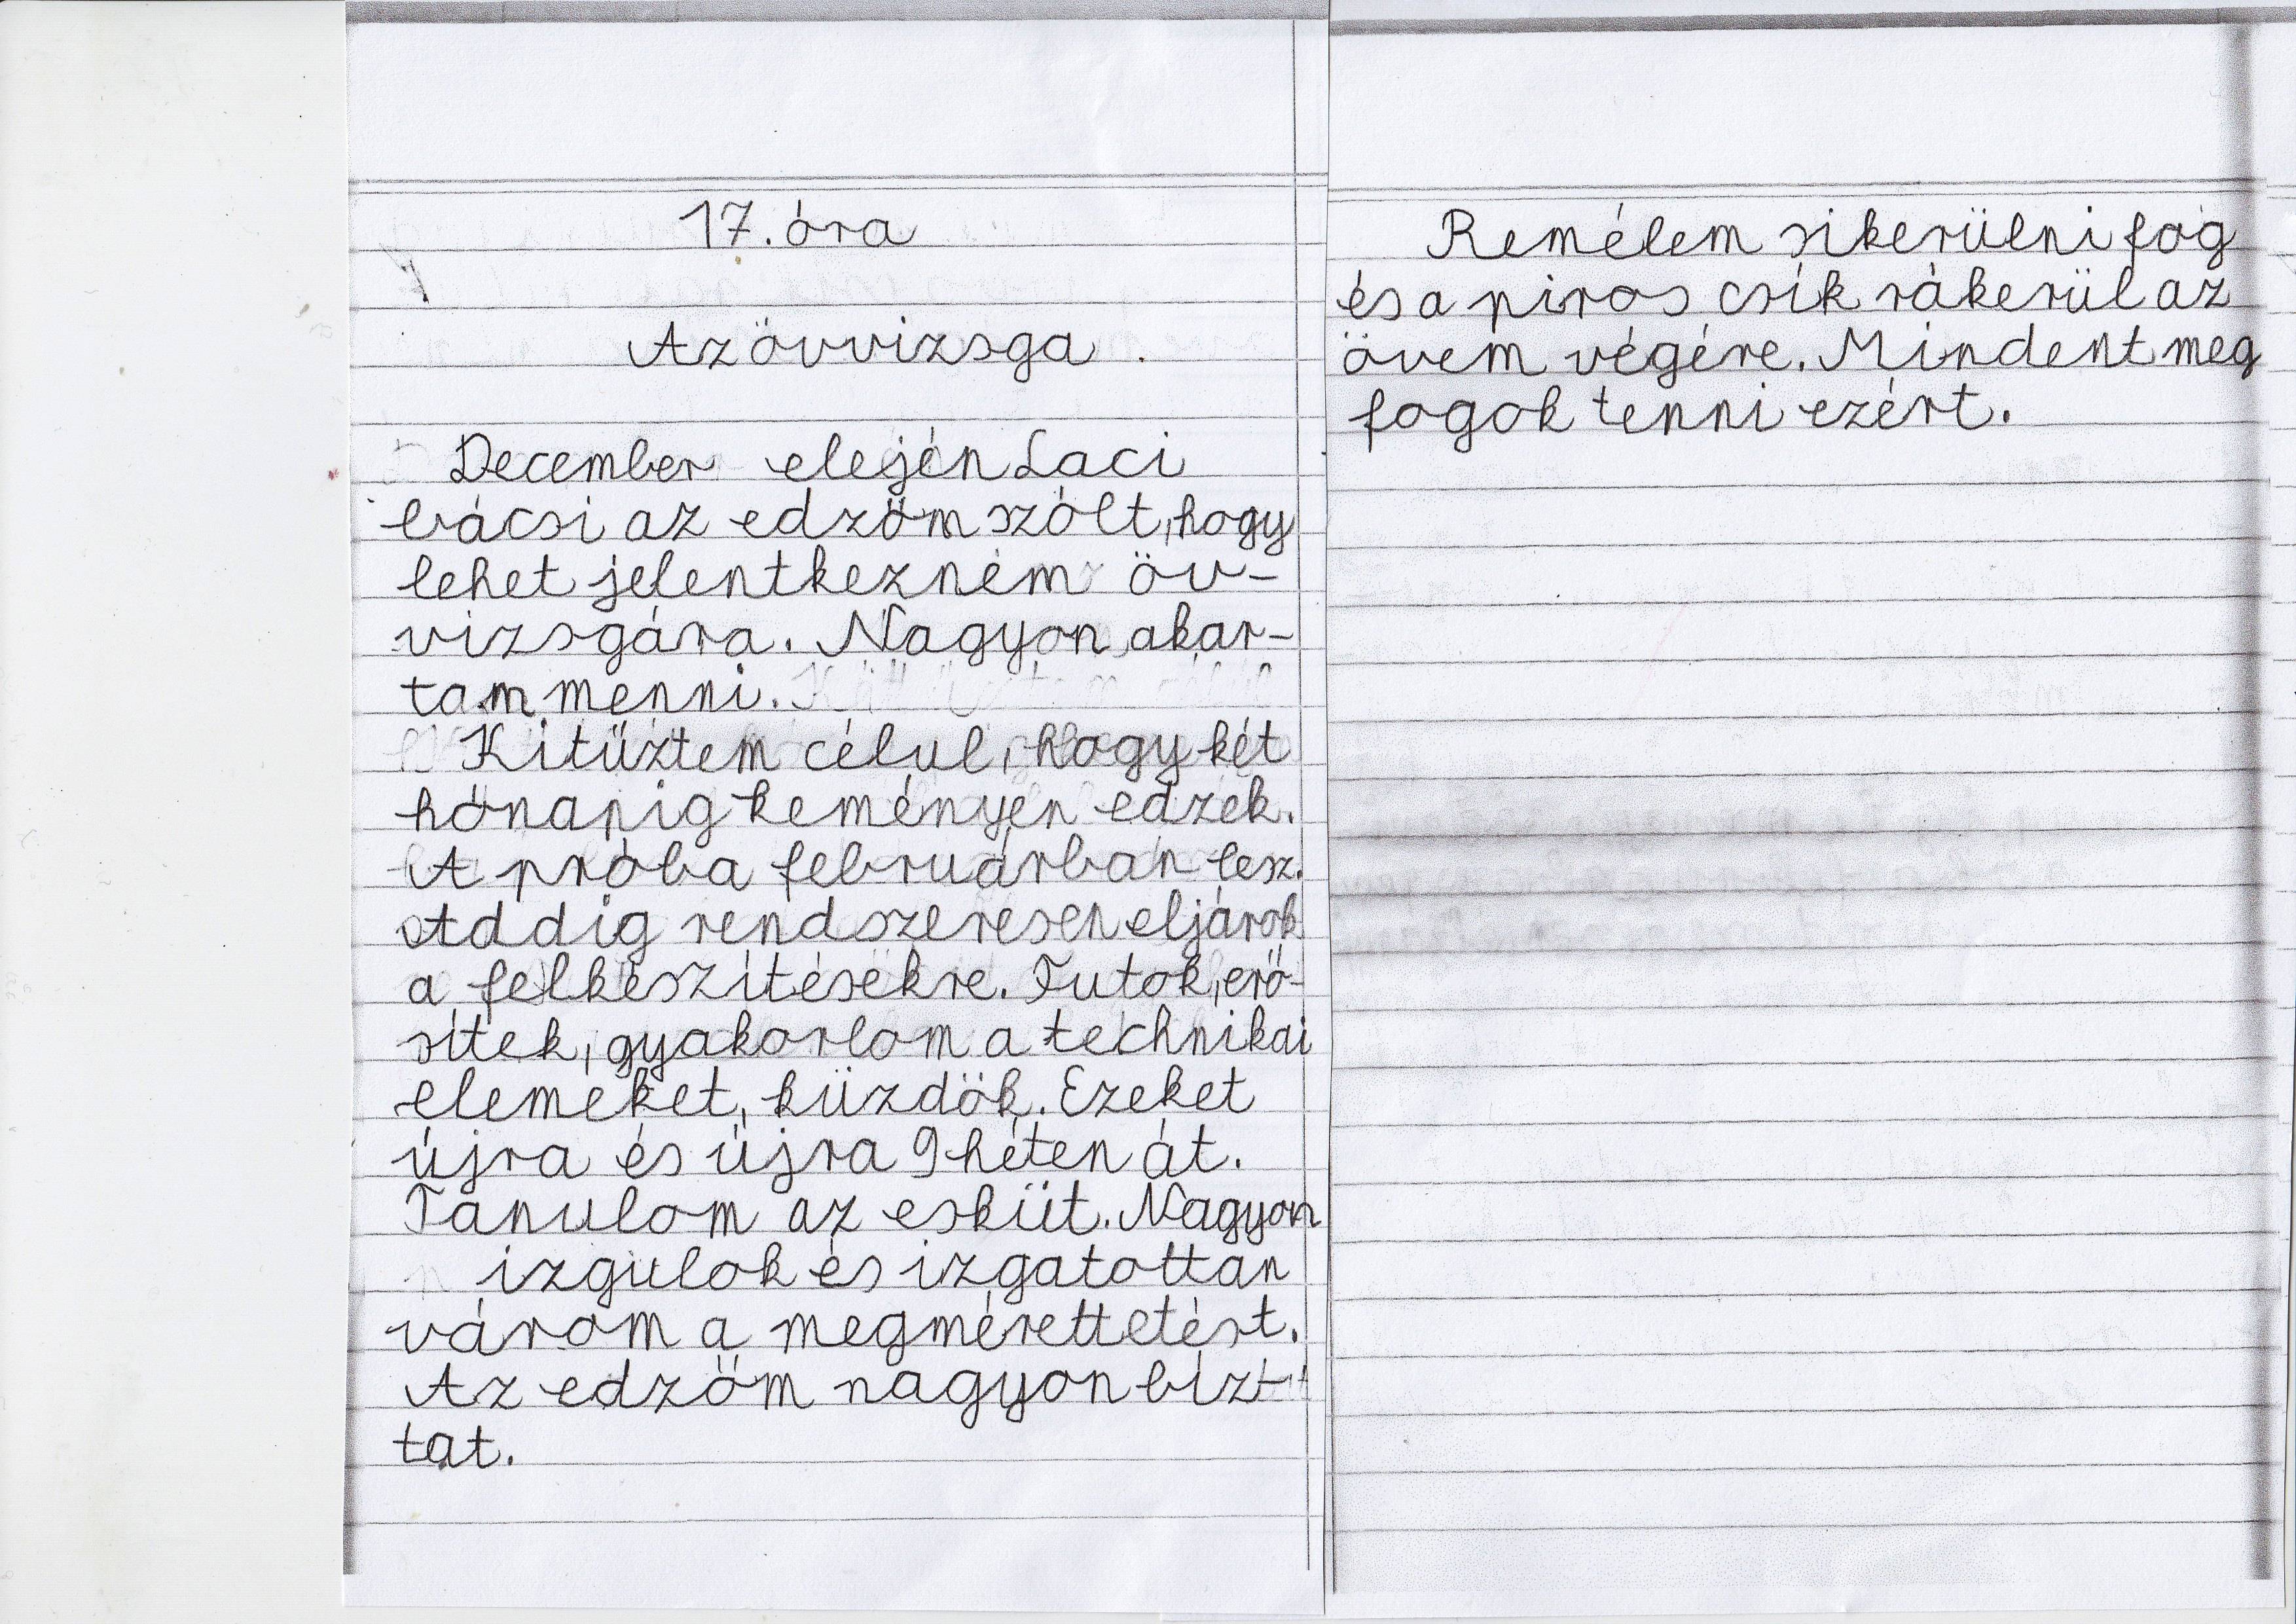 17. óra
Az övvizsga
December elején Laci
bácsi az edzöm szólt, hogy
lehet jelentkezném öv-
vizsgára. Nagyon akar-
tam menni.
Kitüztem célul, hogy két
hónapig keményen edzek.
A próba februárban lesz.
Addig rendszeresen eljárok
a felkészítésekre. Futok, erö-
sítek, gyakorlom a technikai
elemeket, küzdök. Ezeket
újra és újra 9 héten át.
Tanulom az esküt. Nagyon
izgulok és izgatottan
várom a megmérettetést.
Az edzöm nagyon bízt
tat.
Remélem sikerülni fog
és a piros csík rákerül az
övem végére. Mindent meg
fogok tenni ezért.